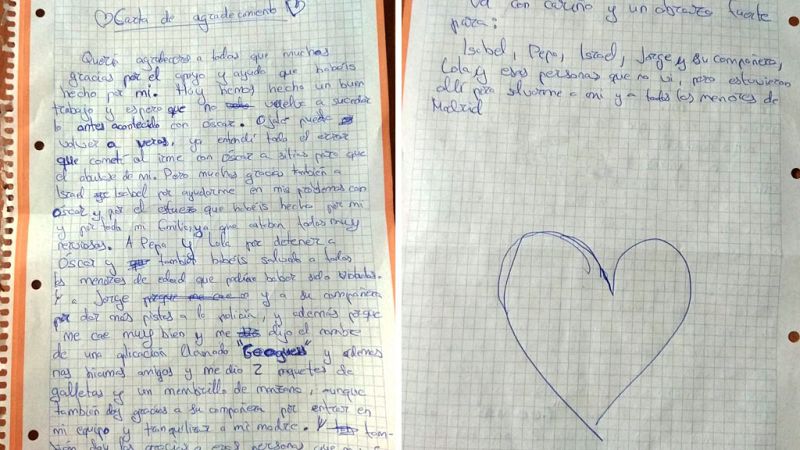 Carta de agradecimiento
Quería agradeceros a todos que muchas
gracias por el apoyo y ayuda que habéis
hecho por mi. Hoy hemos hecho un buen
trabajo y espero que no vuelva a suceder
lo antes acontecido con Oscar. Ojalá pueda
volver a veros, ya entendí todo el error
que cometí al irme con Oscar a sitios para que
el abuse de mi. Pero muchas gracias también a
Israel Isabel por ayudarme en mis problemas con
Oscar y por el esfuerzo que habéis hecho por mi
y por toda mi familia, ya que estaban todos muy
nerviosos. A Pepa y Lola por detener a
Óscar y también habéis salvado a todos
los menores de edad que podían haber sido
Y a Jorge y a su compañera
por dar más pistas a la policía, y además porque
me cae muy bien y me dijo el nombre
de una aplicación llamado "Geoguess" y además
nos hicimos amigos y me dio 2 paquetes de
galletas y un membrillo de manzana, aunque
también doy gracias a su compañera por entrar en
mi equipo y tranquilizar a mi madre. Y tam-
bién doy las gracias a esas personas que no
Va con cariño y un abrazo fuerte
para:
Isabel, Pepa, Israel, Jorge y su compañera,
Lola y esas personas que no vi, pero estuvieron
allí para salvarme a mi y a todos los menores de
Madrid